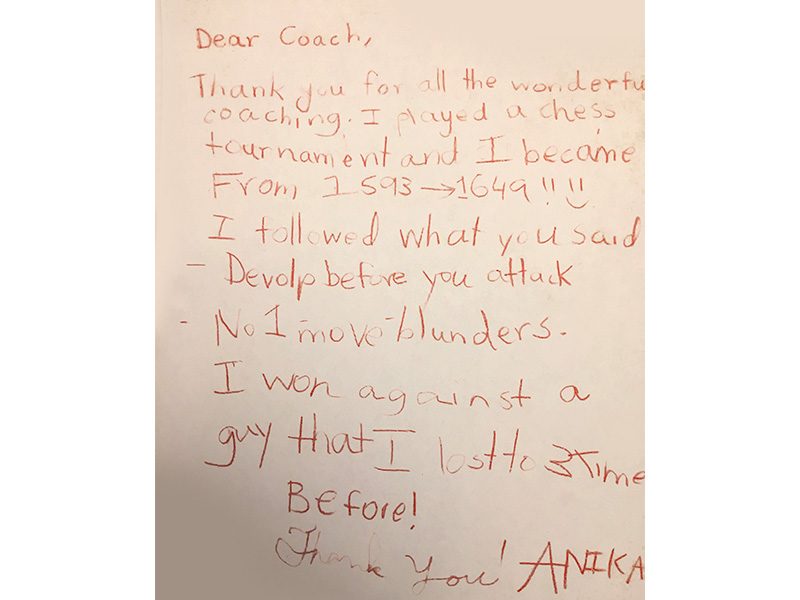 Dear Coach,
Thank you for all the wonderfu
coaching. I played a chess
tournament and I became
From 1593→1649!!
I followed what you said
- Devolp before you attack
- No 1-move-blunders.
I won against a
guy that I lost to 3 Time
Before!
Thank You! ANIKA